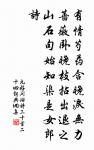 有情芍藥含春淚無力
薔薇臥晚枝拈出退之
山石句始知渠是女郎
詩
元好問論詩三十首二
十四